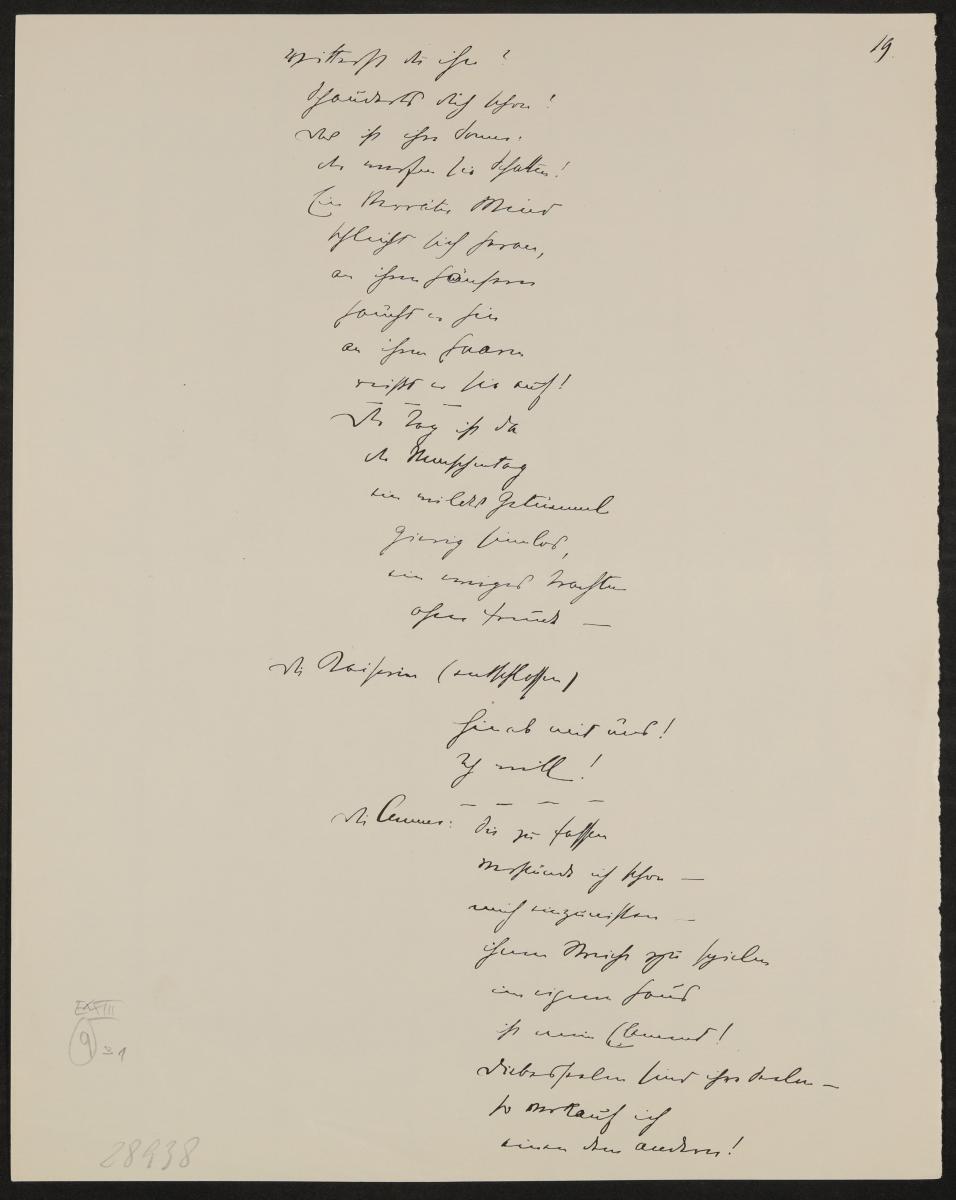 19.
Witterst du ihn?
Schauderts dich schon!
Das ist ihre Sonne.
der werfen sie Schatten!
Ein Verräter Wind
schleicht sich heran,
an ihren Häusern
haucht er hin
an ihren Haaren
reisst er sie auf!
Der Tag ist da
der Menschentag
ein wildes Getümmel
gierig sinnlos,
ein ewiges Trachten
ohne Freude —
die Kaiserin (entschlossen)
Hinab mit uns!
Ich will!
die Amme: Die zu fassen
verstünde ich schon —
mich einzunisten —
ihnen Streiche zu spielen
im eigenen Haus
ist mein Element!
Diebesseelen sind ihre Seelen —
so verkauf ich
einen dem andern!
9
31
28938